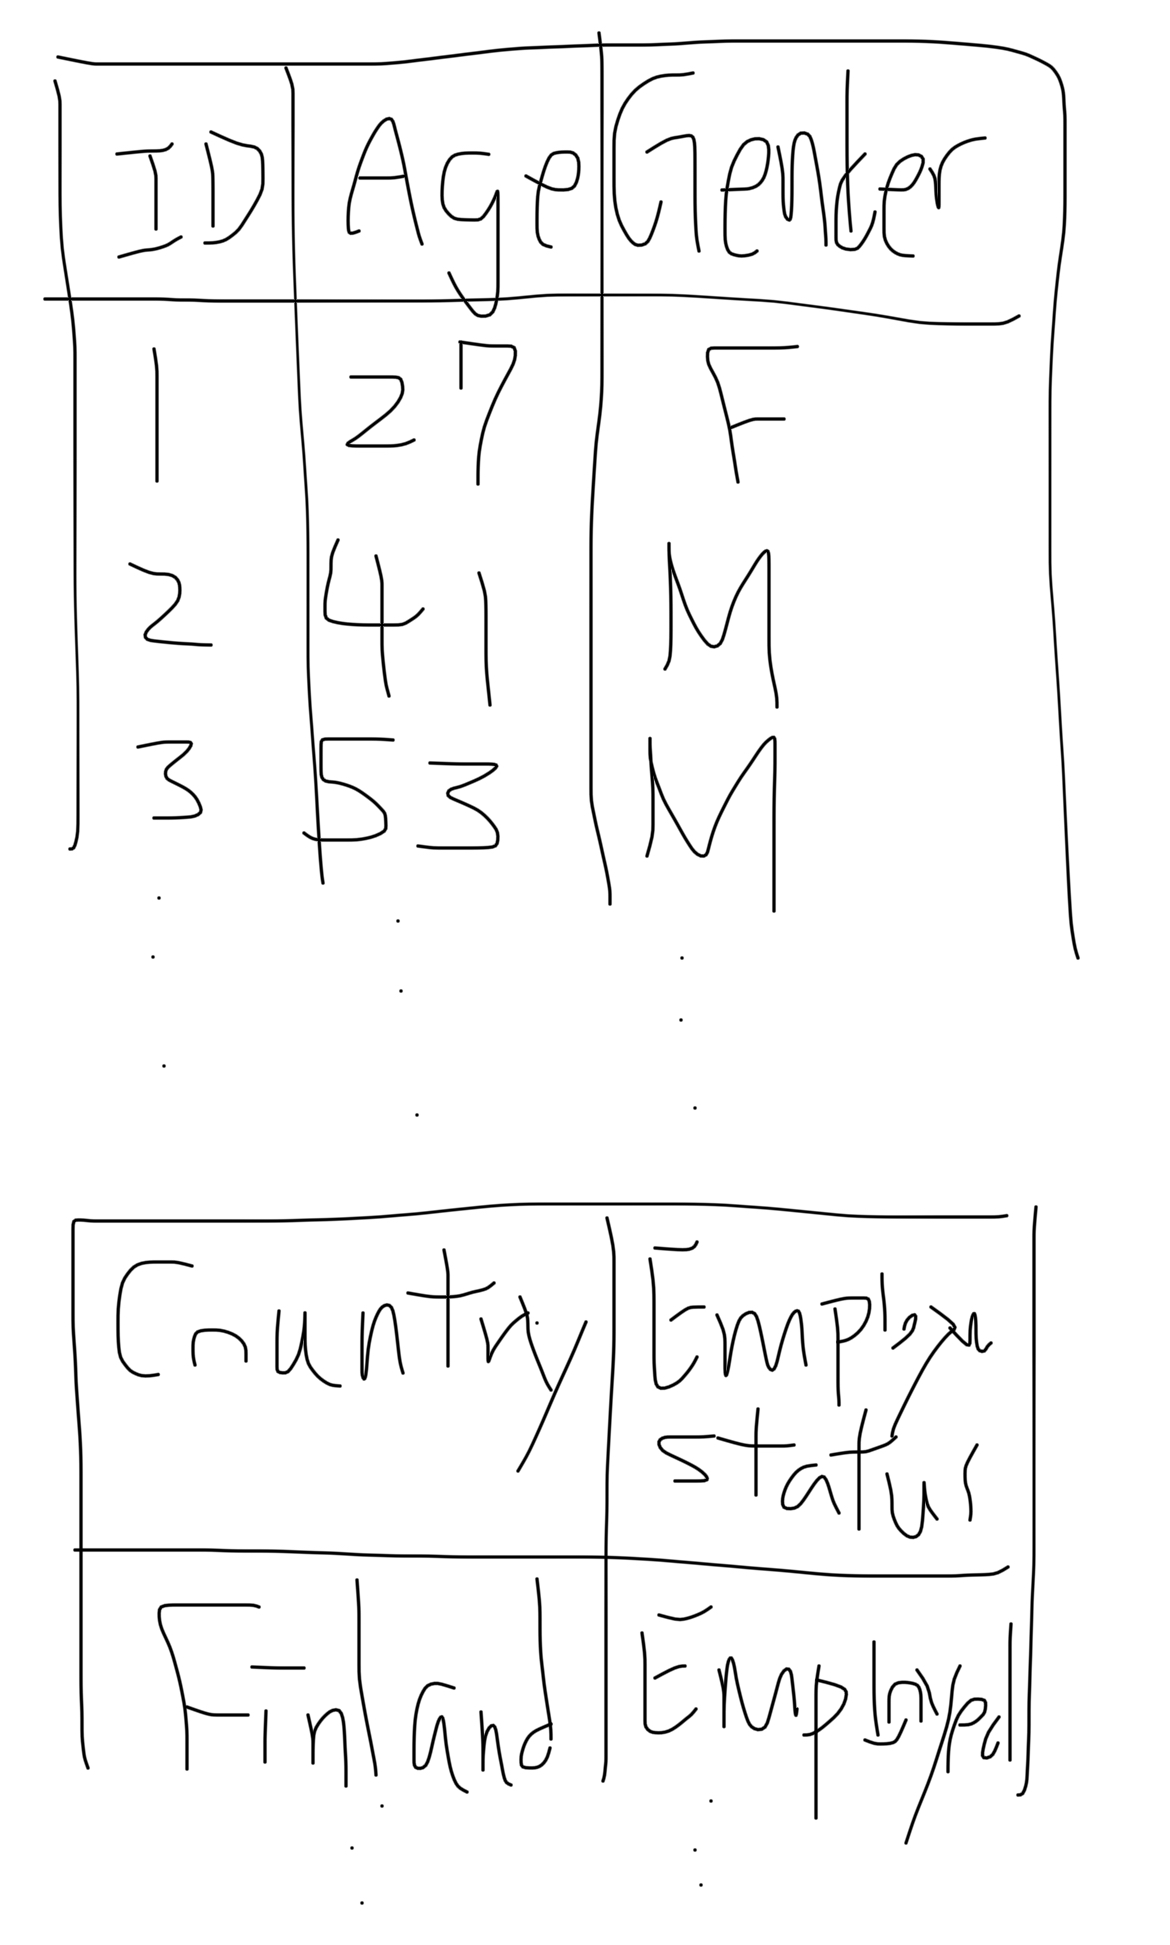 ID Age Gender
1 27 F
2 41 M
3 53 M
Country
status
Finland Employed